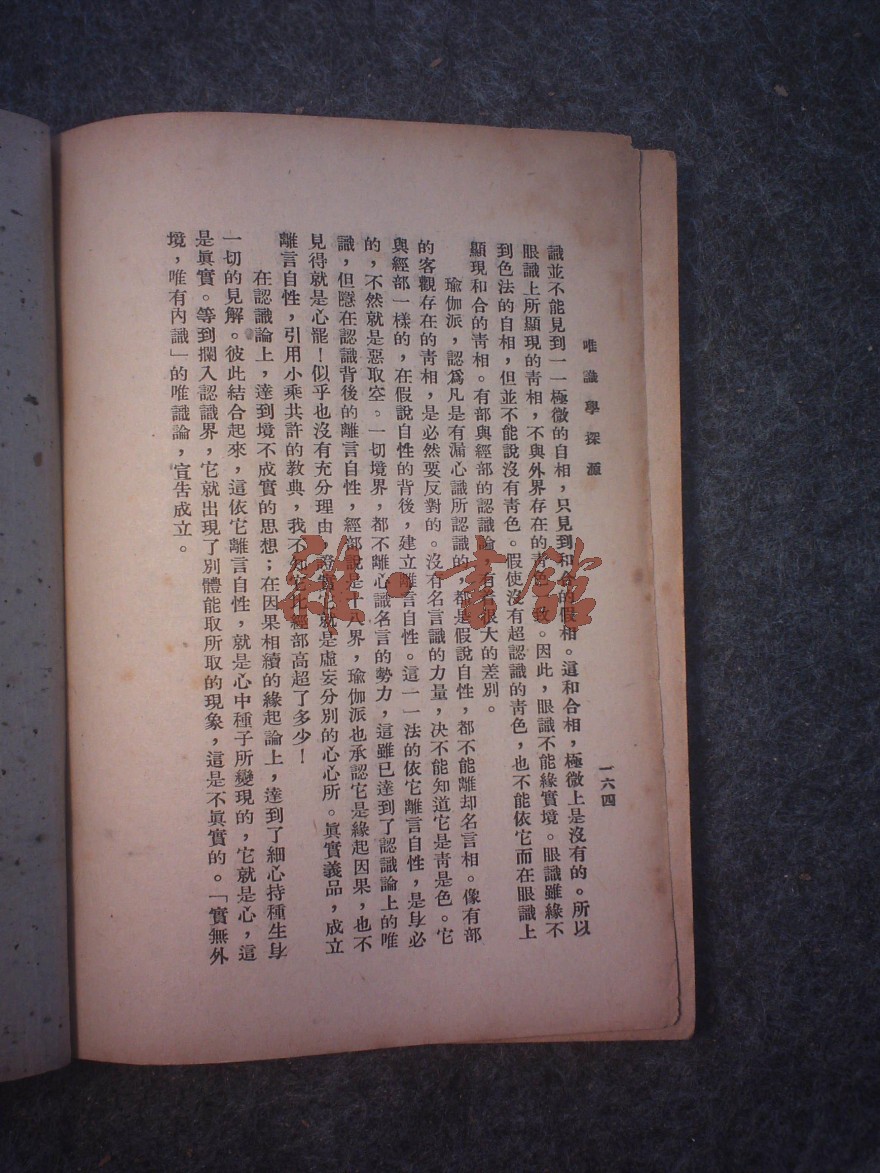 唯識學探源
一六四
識並不能見到一一極微的自相，只見到和合的假相。這和合相，極微上是沒有的。所以
眼識上所顯現的靑相，不與外界存在的靑色一致。因此，眼識不能緣實境。眼識雖緣不
到色法的自相，但並不能說沒有靑色。假使沒有超認識的靑色，也不能依它而在眼識上
顯現和合的靑相。有部與經部的認識論，有着很大的差別。
瑜伽派，認爲凡是有漏心識所認識的，都是假說自性，都不能離却名言相。像有部
的客觀存在的靑相，是必然要反對的。沒有名言識的力量，決不能知道它是靑是色。它
與經部一樣的，在假說自性的背後，建立離言自性。這一一法的依它離言自性，是必
的，不然就是惡取空。一切境界，都不離心識名言的勢力，這雖已達到了認識論上的唯
識，但隱在認識背後的離言自性，經部說是十八界，瑜伽派也承認它是緣起因果，也不
見得就是心罷！似乎也沒有充分理由，證實它就是虛妄分別的心心所。眞實義品，成立
離言自性，引用小乘共許的教典，我不知它比經部高超了多少！
在認識論上，達到境不成實的思想；在因果相續的緣起論上，達到了細心持種生
一切的見解。彼此結合起來，這依它離言自性，就是心中種子所變現的，它就是心，這
是眞實。等到攔入認識界，它就出現了別體能取所取的現象，這是不眞實的。「實無外
境，唯有內識」的唯識論，宣吿成立。
雜·書館